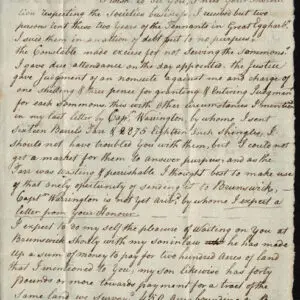 I wish to see you, I need your
tion respecting the Societies business. I received but two
persons rent these two years of the Tenants in Great Egg harb.r
I sued them in a action of debt but to no purpose,
the Constable made excuse for not serving the Summons.
I gave due attendance on the day appointed, the Justice
gave Judgment of an nonsuite against me and charge of
one shilling & three pence for granting & Entering Judgmen
for each Summons this with other circumstances I mention
in my last letter by Capt. Warington by whome I sent
Sixteen Barels Tarr & 2275 Eighteen Inch Shingles, I
should not have troubled you with them, but I could not
get a market for them to answer purpose, and as the
Tarr was wasting & perishable I thought best to make use
of that onely opertunity of sending it to Brunswick,
Capt. Warrington is not yet Arivd. by whome I expect a
letter from your Honour.
I expect to do my self the pleasure of Waiting on You at
Brunswick shortly with my son in law he has made
up a sum of money to pay for two hundred Acres of land
that I mentioned to you, my son likewise has forty
Pounds or more towards payment for a Tract of the
Same land we survey